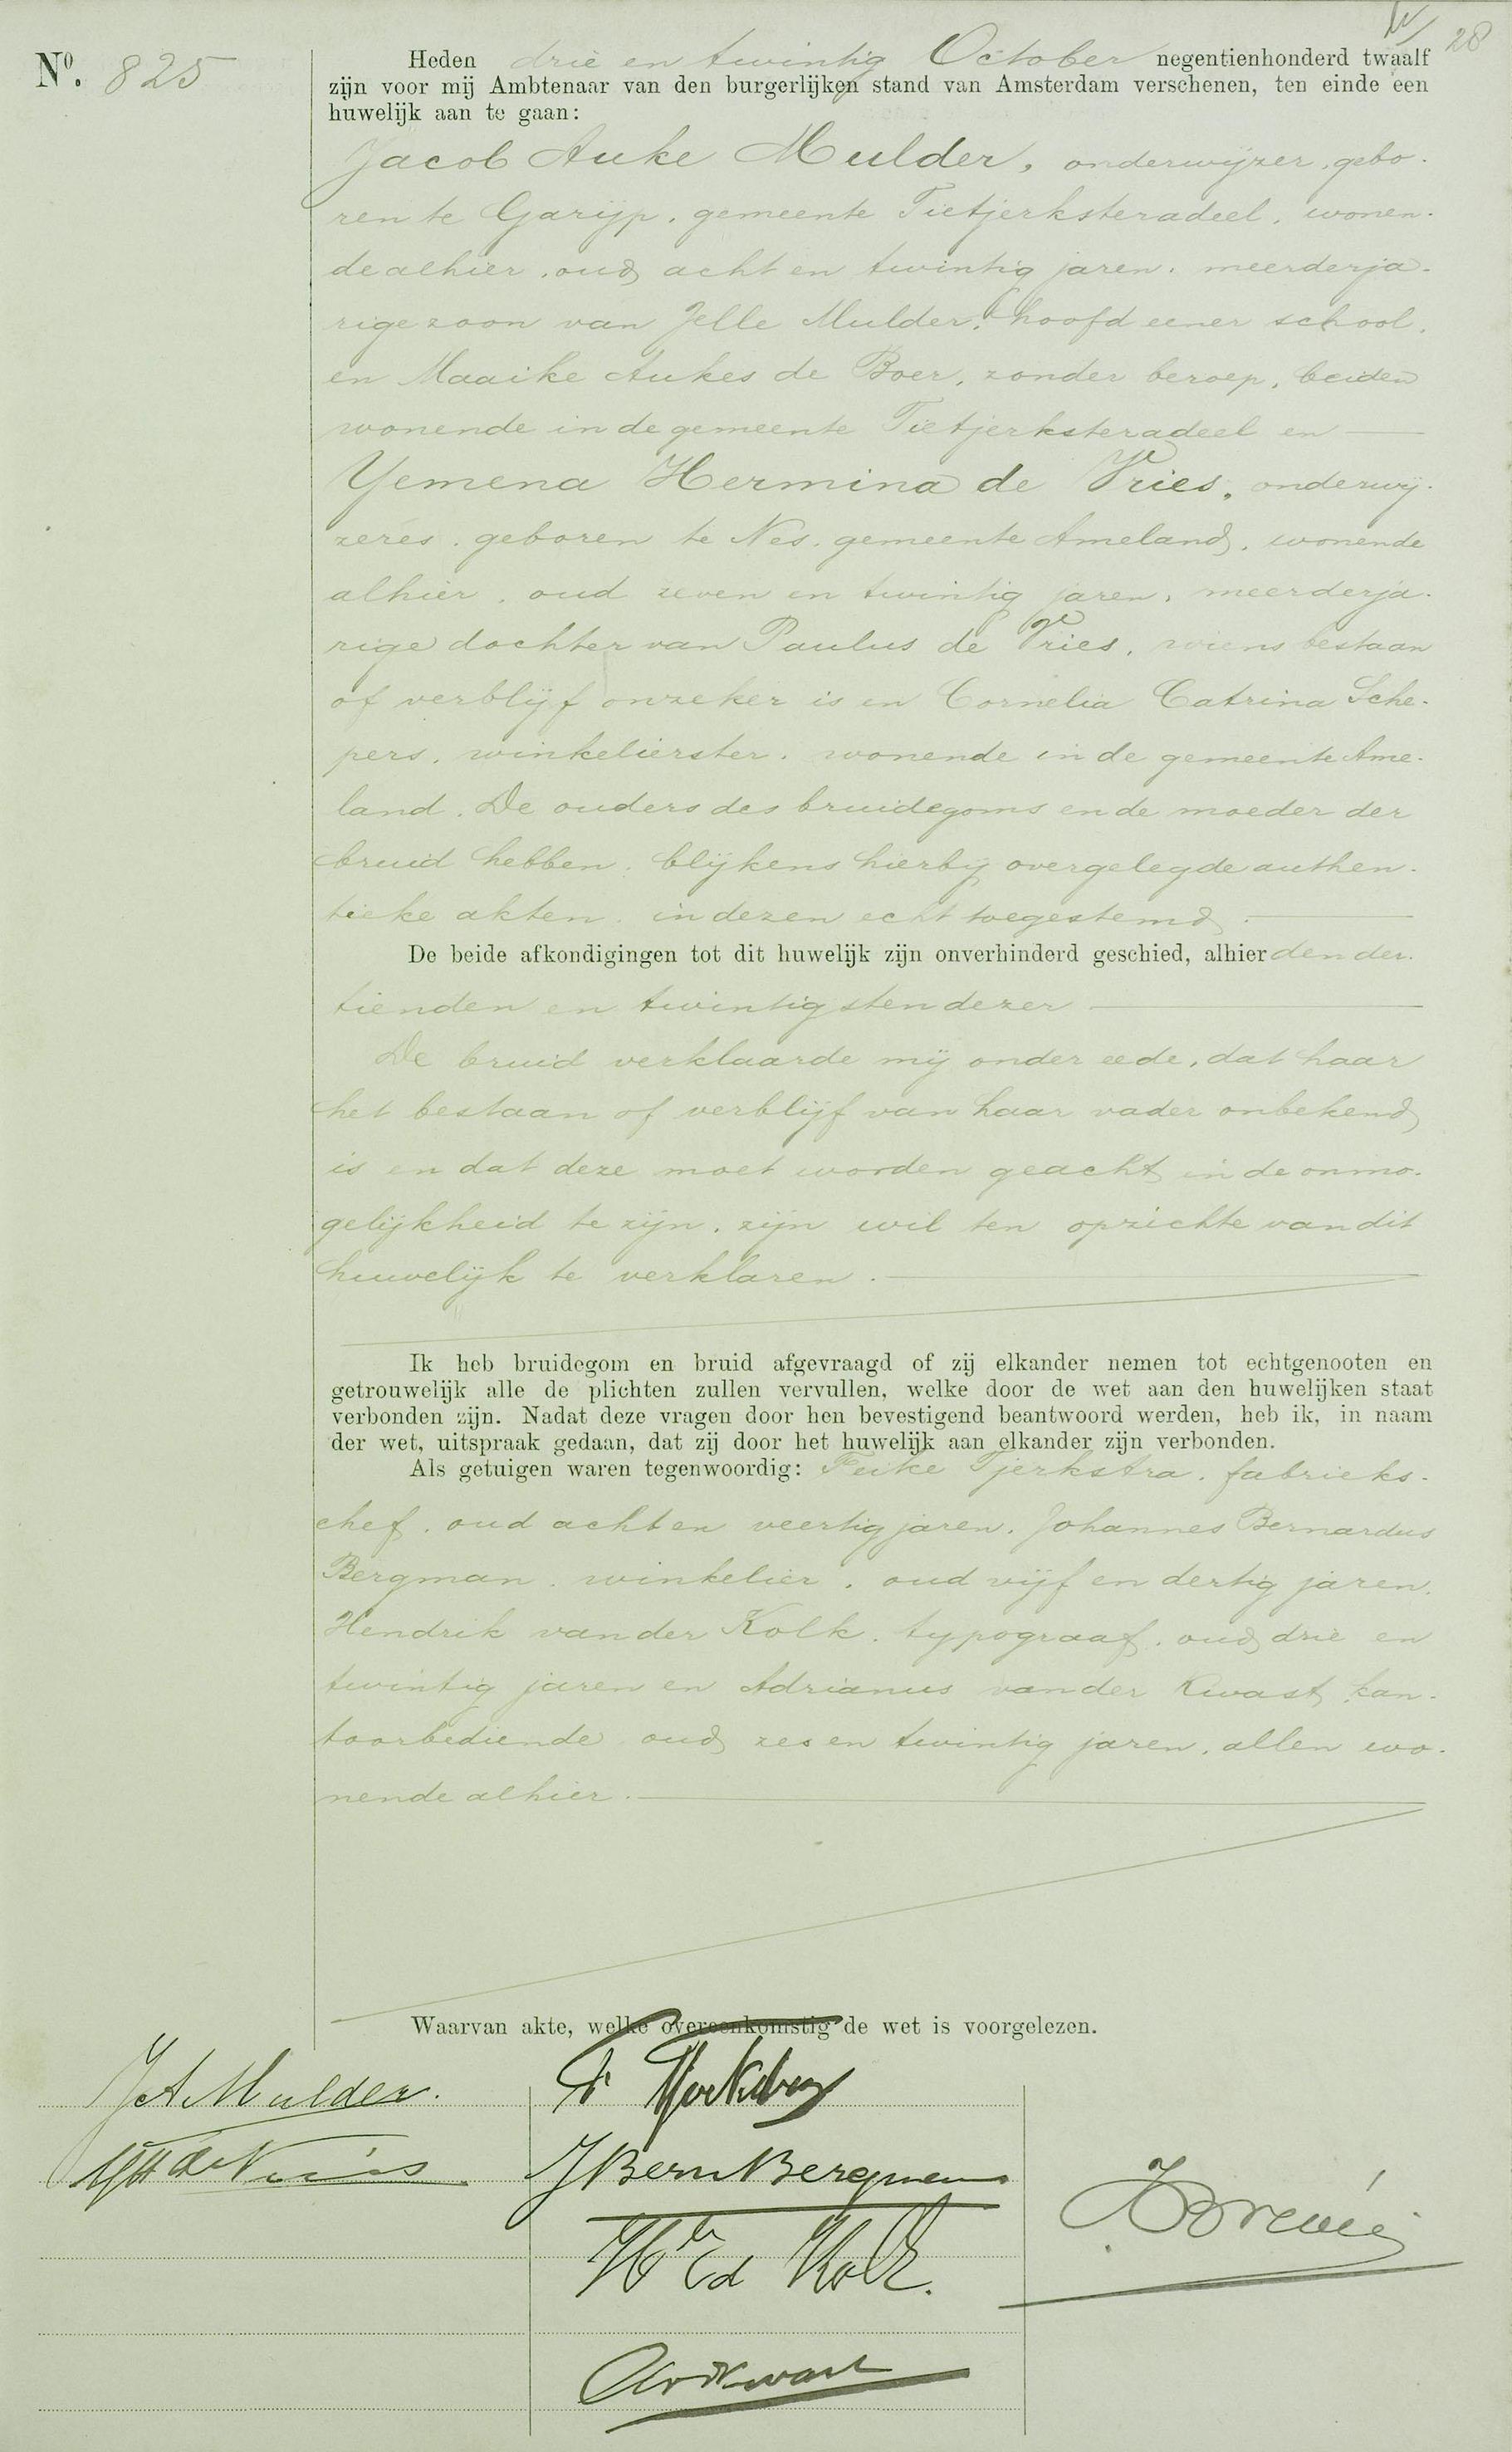 28
Nº. 825
Heden drie en twintig October negentienhonderd twaalf
zijn voor mij Ambtenaar van den burgerlijken stand van Amsterdam verschenen, ten einde een
huwelijk aan te gaan:
Jacob Auke Mulder, onderwijzer, gebo-
ren te Garijp, gemeente Tietjerksteradeel, wonen-
de alhier, oud acht en twintig jaren, meerderja-
rige zoon van Jelle Mulder, hoofd eener school,
en Maaike Aukes de Boer, zonder beroep, beiden
wonende in de gemeente Tietjerksteradeel en
Yemena Hermina de Vries, onderwij-
zeres, geboren te Nes, gemeente Ameland, wonende
alhier, oud zeven en twintig jaren, meerderja-
rige dochter van Paulus de Vries, wiens bestaan
of verblijf onzeker is en Cornelia Catrina Sche-
pers, winkelierster, wonende in de gemeente Ame-
land. De ouders des bruidegoms en de moeder der
bruid hebben, blijkens hierbij overgelegde authen-
tieke akten, in dezen echt toegestemd.
De beide afkondigingen tot dit huwelijk zijn onverhinderd geschied, alhier den der-
tienden en twintigsten dezer
De bruid verklaarde mij onder eede, dat haar
het bestaan of verblijf van haar vader onbekend
is en dat deze moet worden geacht in de onmo-
gelijkheid te zijn, zijn wil ten opzichte van dit
huwelijk te verklaren.
Ik heb bruidegom en bruid afgevraagd of zij elkander nemen tot echtgenooten en
getrouwelijk alle de plichten zullen vervullen, welke door de wet aan den huwelijken staat
verbonden zijn. Nadat deze vragen door hen bevestigend beantwoord werden, heb ik, in naam
der wet, uitspraak gedaan, dat zij door het huwelijk aan elkander zijn verbonden.
Als getuigen waren tegenwoordig: Feike Tjerkstra, fabrieks-
chef, oud acht en veertig jaren, Johannes Bernardus
Bergman, winkelier, oud vijf en dertig jaren,
Hendrik van der Kolk, typograaf, oud drie en
twintig jaren en Adrianus van der Kwast, kan-
toorbediende, oud zes en twintig jaren, allen wo-
nende alhier.
Waarvan akte, welke overeenkomstig de wet is voorgelezen.
JA Mulder.
YH de Vries
JBern Bergman
H v d Kolk.
AvdKwast